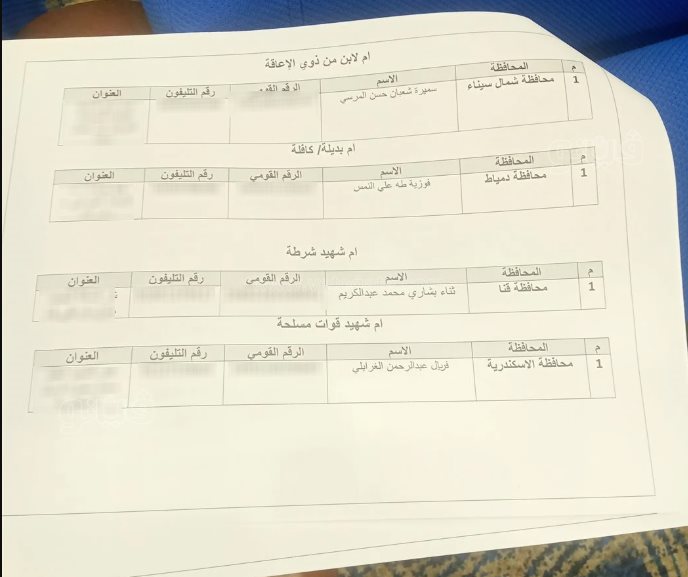 ام لابن من ذوي الإعاقة
م المحافظة الاسم الرقم القومي رقم التليفون العنوان
1 محافظة شمال سيناء سميرة شعبان حسن المرسي
ام بديلة/ كافلة
م المحافظة الاسم الرقم القومي رقم التليفون العنوان
1 محافظة دمياط فوزية طه علي النمس
ام شهيد شرطة
م المحافظة الاسم الرقم القومي رقم التليفون العنوان
1 محافظة قنا ثناء بشاري محمد عبدالكريم
ام شهيد قوات مسلحة
م المحافظة الاسم الرقم القومي رقم التليفون العنوان
1 محافظة الاسكندرية فريال عبدالرحمن الغرابلي